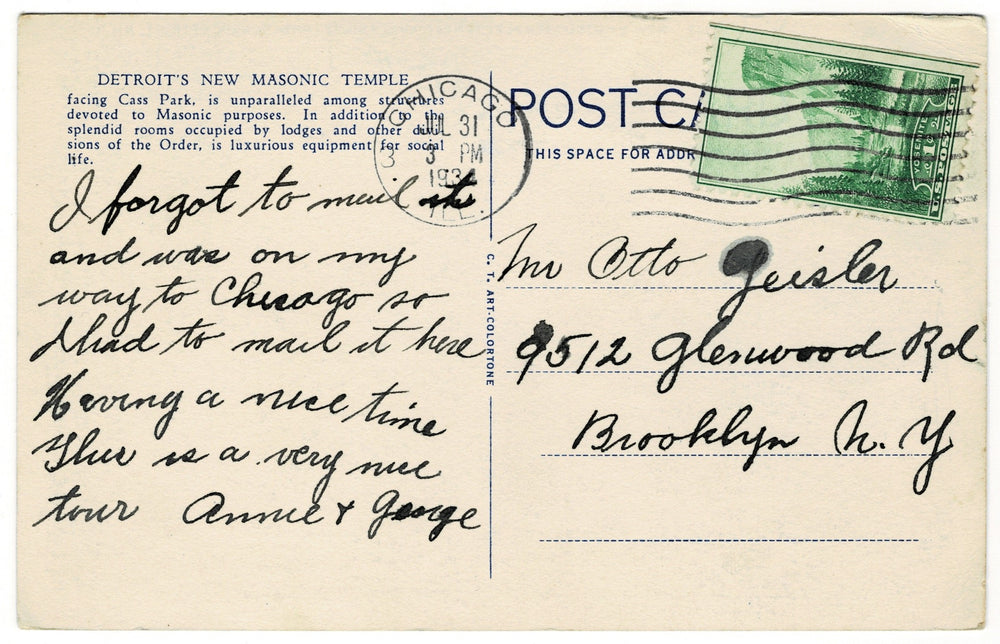 DETROIT'S NEW MASONIC TEMPLE
facing Cass Park, is unparalleled among structures
devoted to Masonic purposes. In addition to
splendid rooms occupied by lodges and other divi-
sions of the Order, is luxurious equipment for social
life.
I forgot to mail it
and was on my
way to Chicago so
I had to mail it here
Having a nice time
This is a very nice
tour Annie & George
CHICAGO
JUL 31
3 PM
1934
ILL.
C. T. ART-COLORTONE
POST CA
THIS SPACE FOR ADDR
YOSEMITE
1
U.S. POSTAGE
Mr Otto Geisler
9512 Glenwood Rd
Brooklyn N. Y